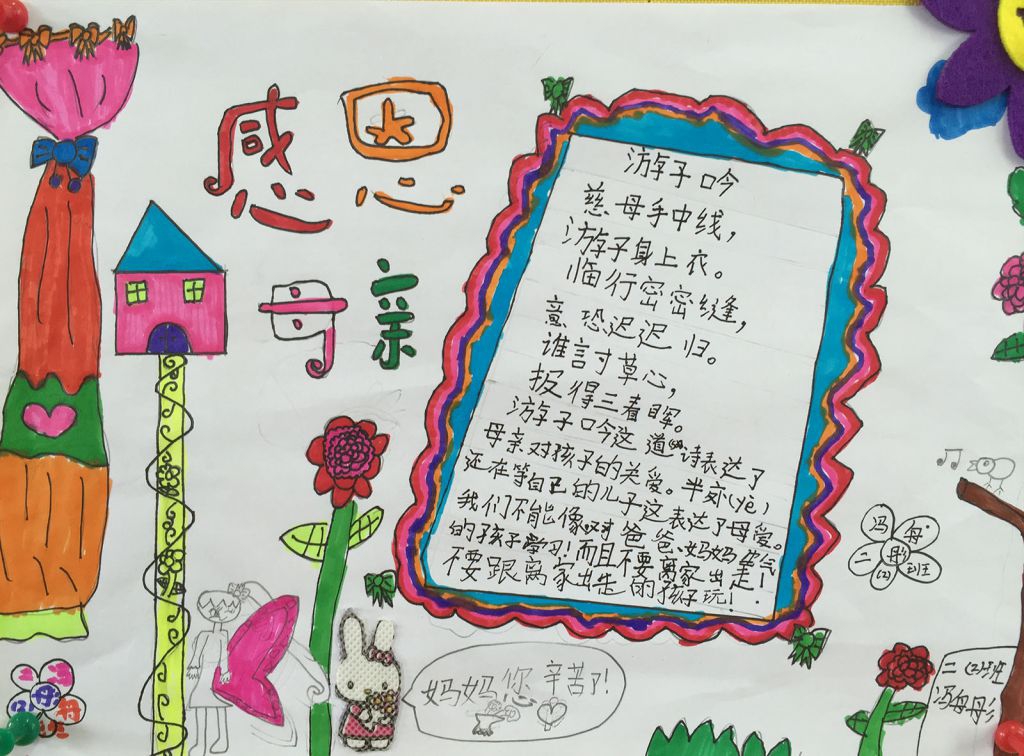 感恩
母亲
游子吟
慈母手中线，
游子身上衣。
临行密密缝，
意恐迟迟归。
谁討草心，
报得三春晖。
游子吟这道诗表达了
母亲对孩子的关爱。半夜(yè)
还在等自己的儿子这表达了母爱。
我们不能像对爸爸、妈妈生气
的孩子学习！而且不要离家出走！
不要跟离家出走的孩子玩！
妈妈您辛苦了！
二(2)班
二(2)班